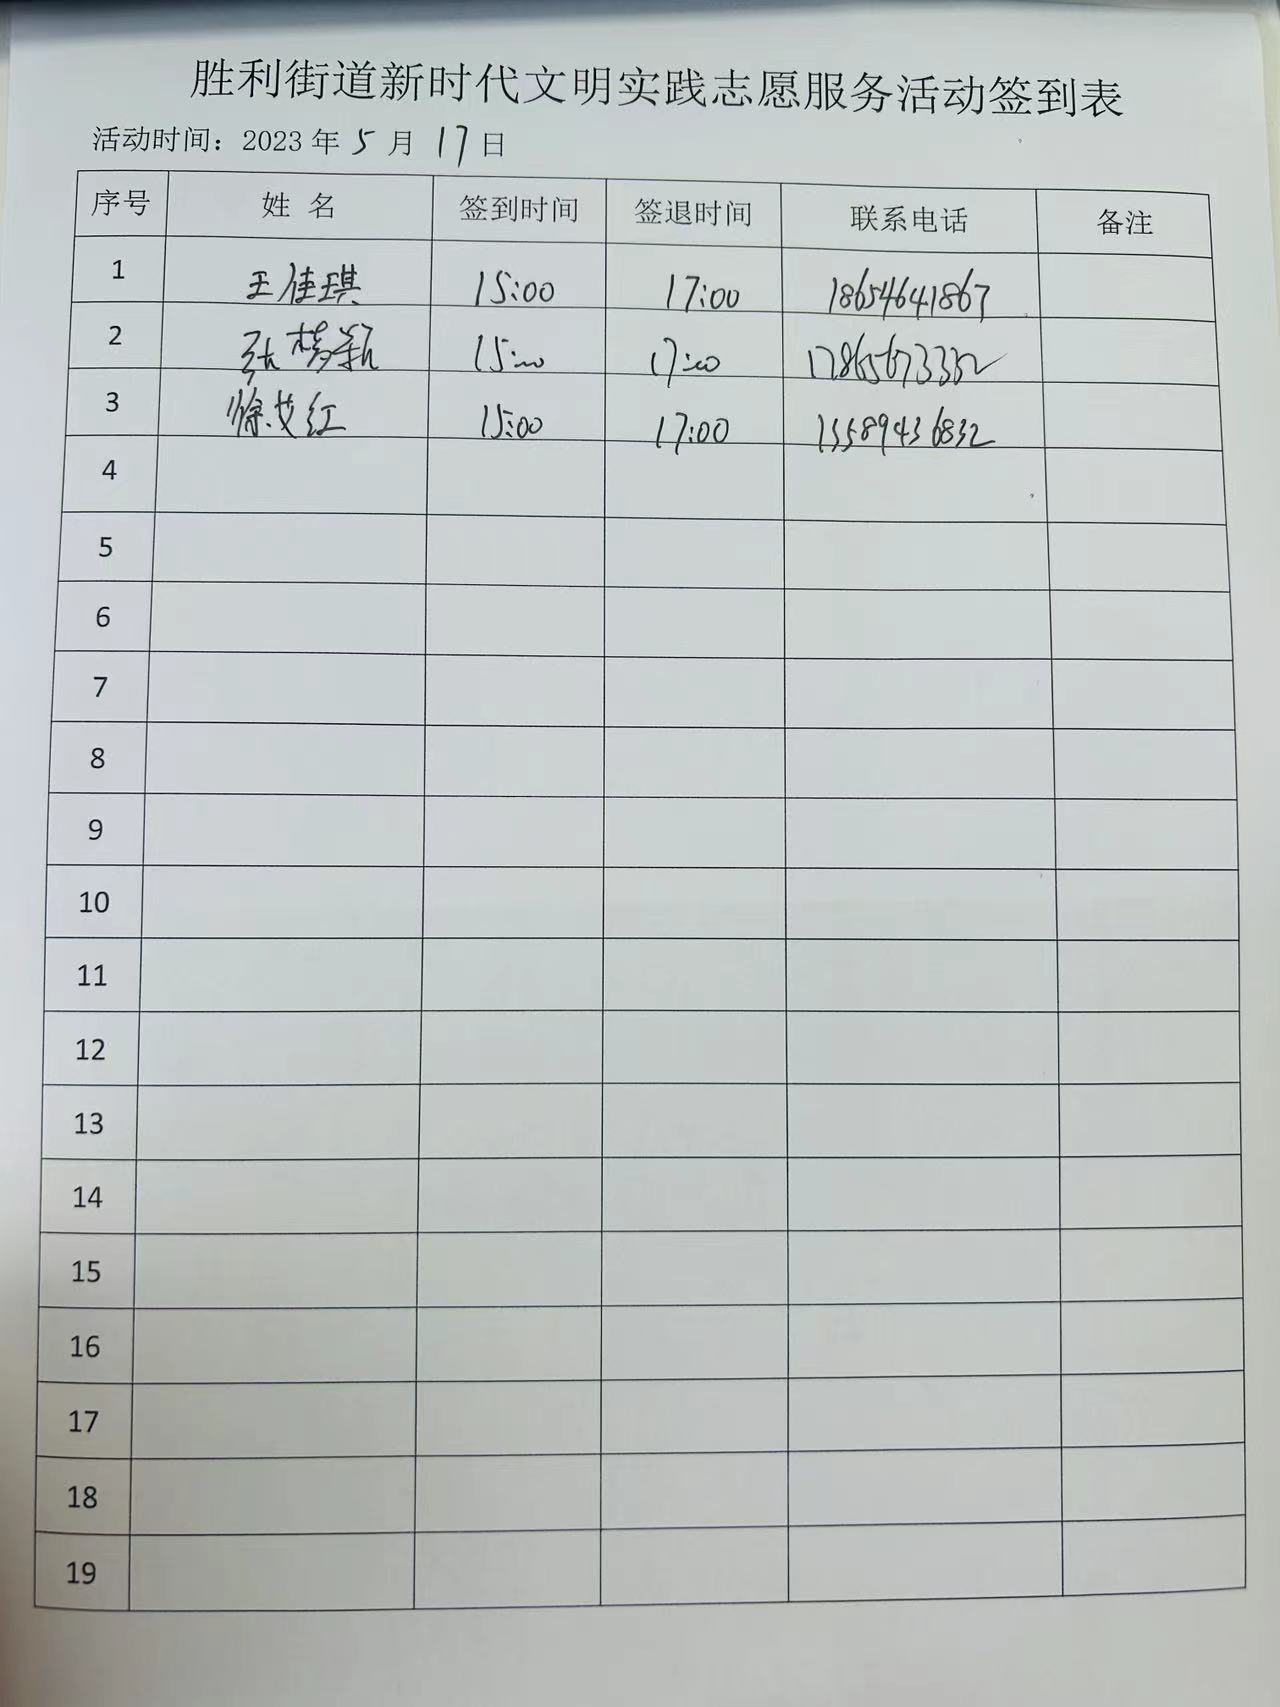 胜利街道新时代文明实践志愿服务活动签到表
活动时间：2023 年 5 月 17 日
序号 姓 名 签到时间 签退时间 联系电话 备注
1 王佳琪 15:00 17:00 18654641867
2 张楠新 15:00 17:00 17865673332
3 徐艾红 15:00 17:00 13589436832
4
5
6
7
8
9
10
11
12
13
14
15
16
17
18
19